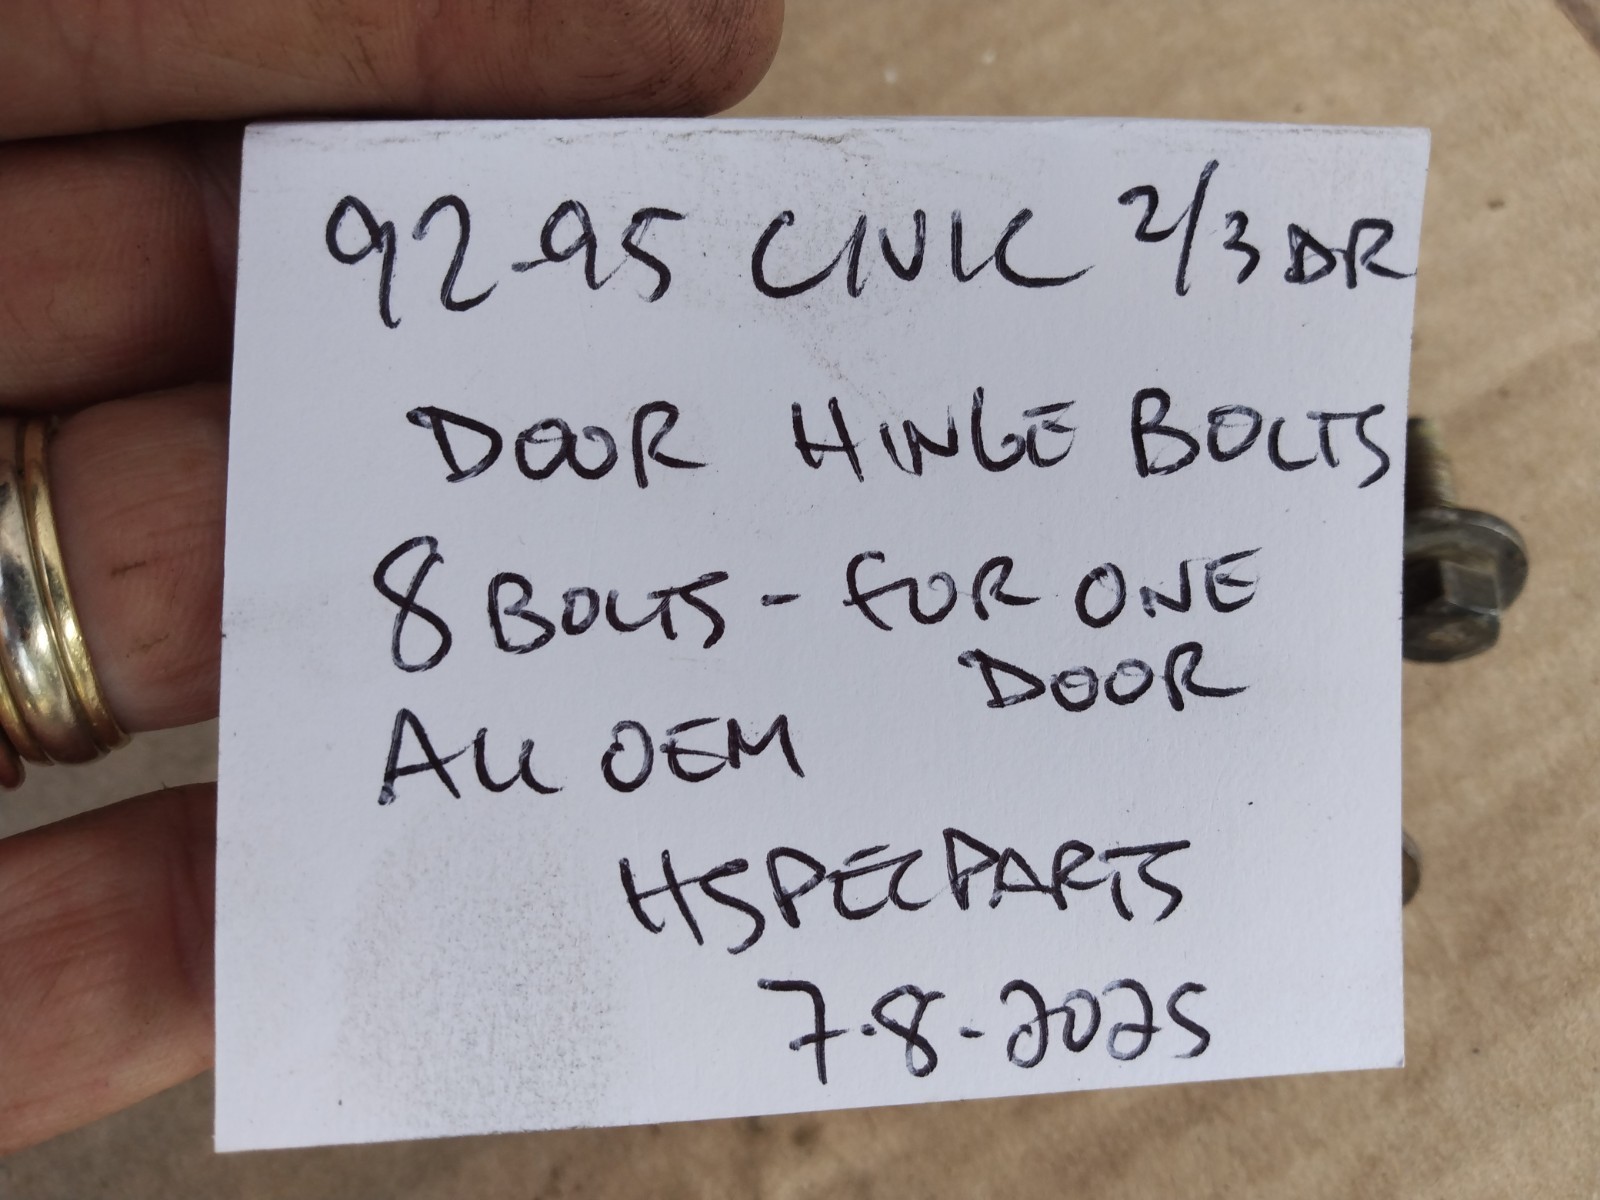 92-95 CIVIC 2/3 DR
DOOR HINGE BOLTS
8 BOLTS - FOR ONE
DOOR
ALL OEM
HSPECPARTS
7-8-2025